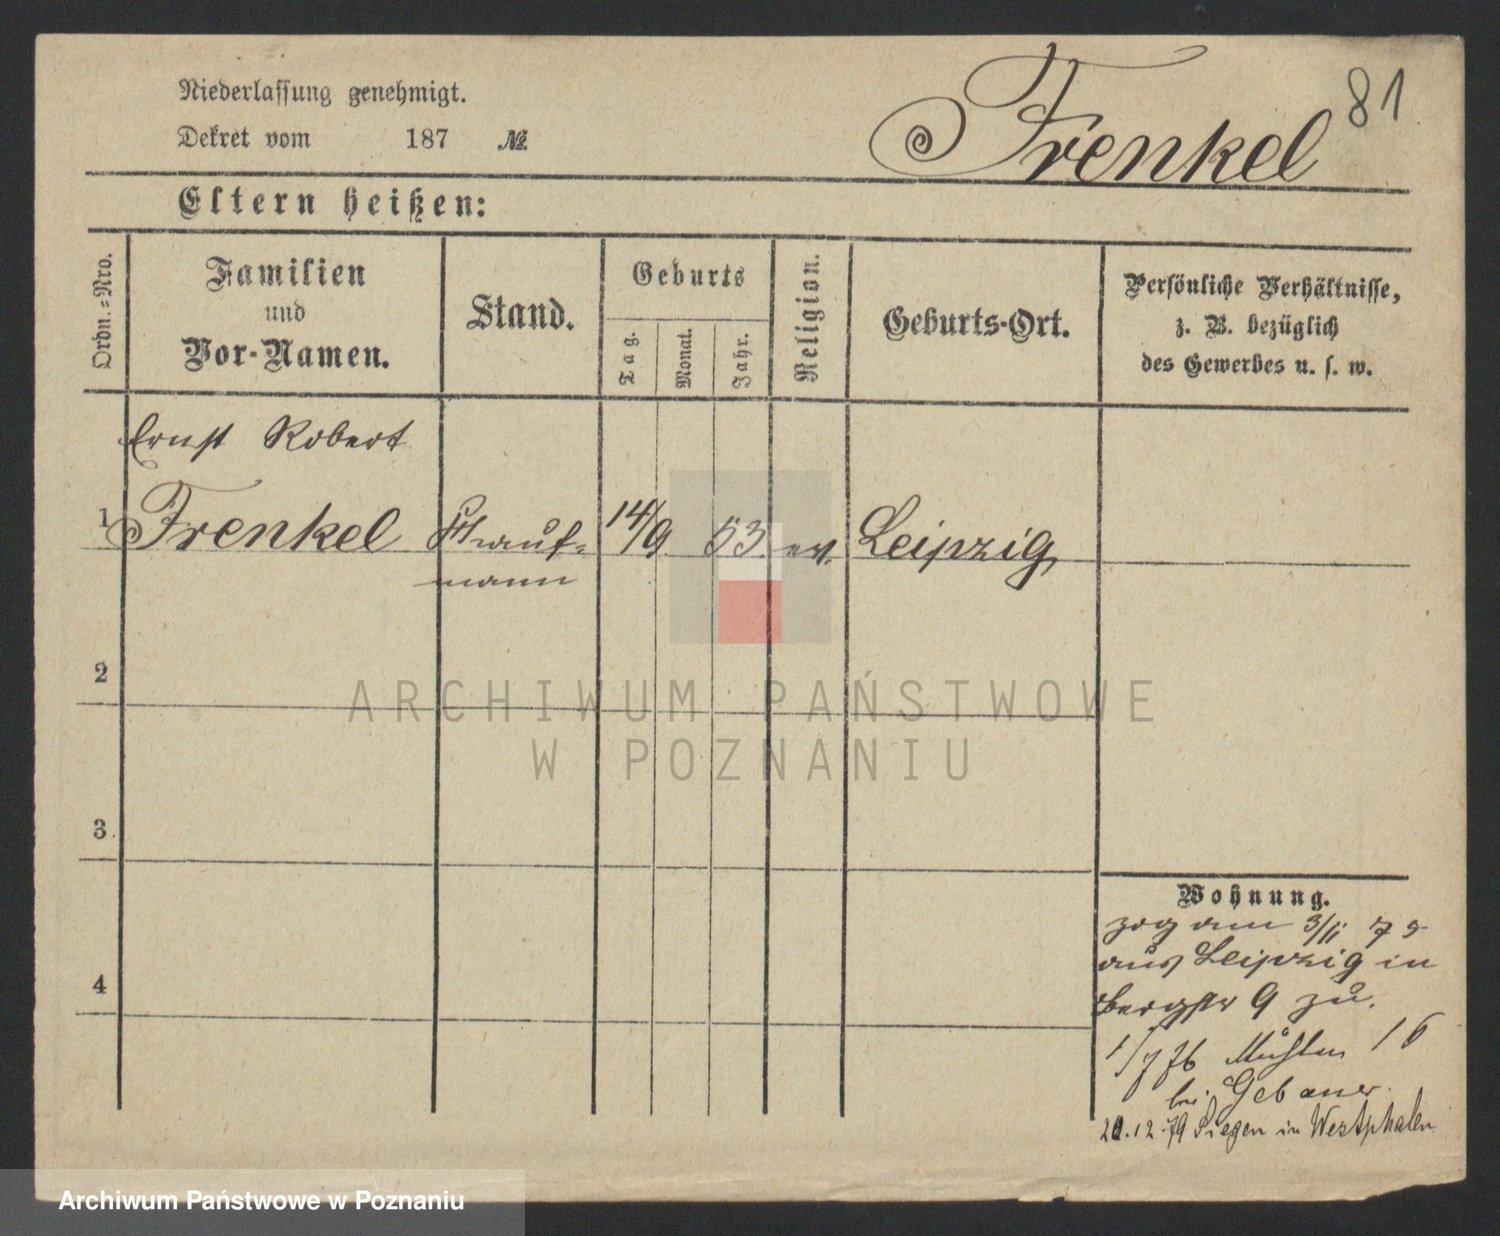 81
Niederlassung genehmigt.
Dekret vom 187 №.
Frenkel
Eltern heißen:
Ordn.-Nro.
Familien
und
Vor-Namen.
Stand.
Geburts
Tag.
Monat.
Jahr.
Religion.
Geburts-Ort.
Persönliche Verhältnisse,
z. B. bezüglich
des Gewerbes u. s. w.
Ernst Robert
1 Frenkel Kauf- 14/9 53 ev. Leipzig
mann
2
3.
4
Wohnung.
zog am 3/11 75
aus Leipzig in
Bergstr 9 zu.
1/7 76 Mühlen 16
bei Gebauer.
20.12.79 Siegen in Westphalen
ARCHIWUM PAŃSTWOWE
W POZNANIU
Archiwum Państwowe w Poznaniu